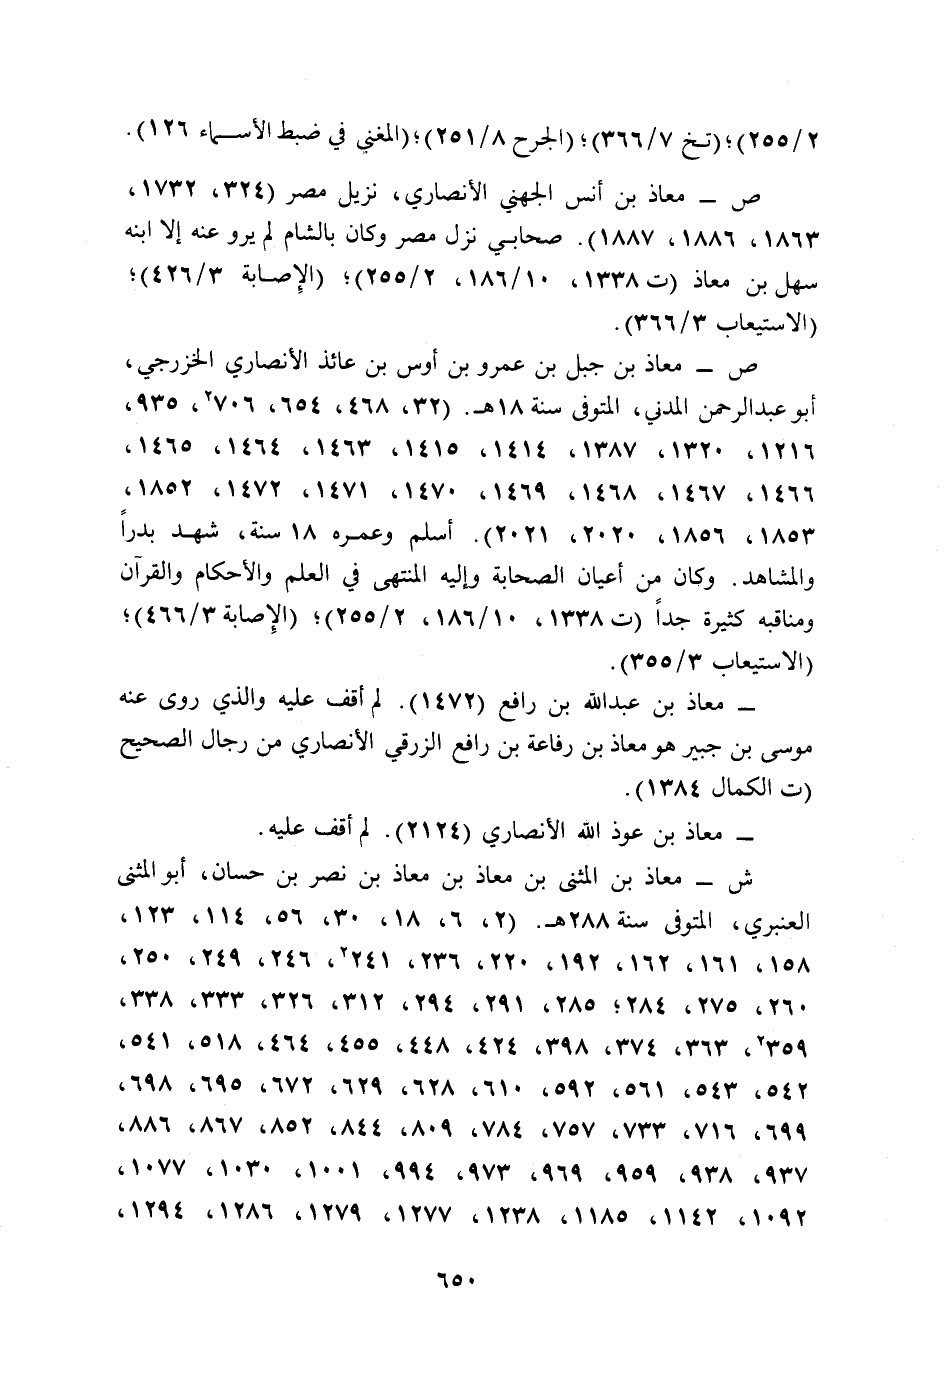 ٢/٢٥٥)؛ (تـخ ٣٦٦/٧)؛ (الجرح ٢٥١/٨)؛ (المغني في ضبط الأسـماء ١٢٦).
ص ــ معاذ بن أنس الجهني الأنصاري، نزيل مصر (٣٢٤، ١٧٣٢،
١٨٦٣، ١٨٨٦، ١٨٨٧). صحابي نزل مصر وكان بالشام لم يرو عنه إلا ابنه
سهل بن معاذ (ت ١٣٣٨، ١٨٦/١٠، ٢٥٥/٢)؛ (الإصابة ٤٢٦/٣)؛
(الاستيعاب ٣٦٦/٣).
ص ــ معاذ بن جبل بن عمرو بن أوس بن عائذ الأنصاري الخزرجي،
أبو عبدالرحمن المدني، المتوفى سنة ١٨هـ. (٣٢، ٤٦٨، ٦٥٤، ٧٠٦²، ٩٣٥،
١٢١٦، ١٣٢٠، ١٣٨٧، ١٤١٤، ١٤١٥، ١٤٦٣، ١٤٦٤، ١٤٦٥،
١٤٦٦، ١٤٦٧، ١٤٦٨، ١٤٦٩، ١٤٧٠، ١٤٧١، ١٤٧٢، ١٨٥٢،
١٨٥٣، ١٨٥٦، ٢٠٢٠، ٢٠٢١). أسلم وعمره ١٨ سنة، شهد بدراً
والمشاهد. وكان من أعيان الصحابة وإليه المنتهى في العلم والأحكام والقرآن
ومناقبه كثيرة جداً (ت ١٣٣٨، ١٨٦/١٠، ٢٥٥/٢)؛ (الإصابة ٤٦٦/٣)؛
(الاستيعاب ٣٥٥/٣).
ــ معاذ بن عبدالله بن رافع (١٤٧٢). لم أقف عليه والذي روى عنه
موسى بن جبير هو معاذ بن رفاعة بن رافع الزرقي الأنصاري من رجال الصحيح
(ت الكمال ١٣٨٤).
ــ معاذ بن عوذ الله الأنصاري (٢١٢٤). لم أقف عليه.
ش ــ معاذ بن المثنى بن معاذ بن معاذ بن نصر بن حسان، أبو المثنى
العنبري، المتوفى سنة ٢٨٨هـ. (٢، ٦، ١٨، ٣٠، ٥٦، ١١٤، ١٢٣،
١٥٨، ١٦١، ١٦٢، ١٩٢، ٢٢٠، ٢٣٦، ٢٤١²، ٢٤٦، ٢٤٩، ٢٥٠،
٢٦٠، ٢٧٥، ٢٨٤؛ ٢٨٥، ٢٩١، ٢٩٤، ٣١٢، ٣٢٦، ٣٣٣، ٣٣٨،
٣٥٩²، ٣٦٣، ٣٧٤، ٣٩٨، ٤٢٤، ٤٤٨، ٤٥٥، ٤٦٤، ٥١٨، ٥٤١،
٥٤٢، ٥٤٣، ٥٦١، ٥٩٢، ٦١٠، ٦٢٨، ٦٢٩، ٦٧٢، ٦٩٥، ٦٩٨،
٦٩٩، ٧١٦، ٧٣٣، ٧٥٧، ٧٨٤، ٨٠٩، ٨٤٤، ٨٥٢، ٨٦٧، ٨٨٦،
٩٣٧، ٩٣٨، ٩٥٩، ٩٦٩، ٩٧٣، ٩٩٤، ١٠٠١، ١٠٣٠، ١٠٧٧،
١٠٩٢، ١١٤٢، ١١٨٥، ١٢٣٨، ١٢٧٧، ١٢٧٩، ١٢٨٦، ١٢٩٤،
٦٥٠